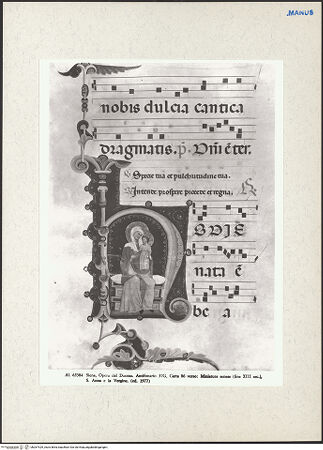 MANUS
nobis dulcia cantica
dragmatis. p. Dñi ẽ ter.
Specie tua et pulchritudine tua.
Intende prospere procede et regna.
HODIE
nata ẽ
be a
Al. 65384 Siena, Opera del Duomo. Antifonario, Carta 86 verso: Miniatura senese (fine XIII sec.),
S. Anna e la Vergine. (ed. 1977)